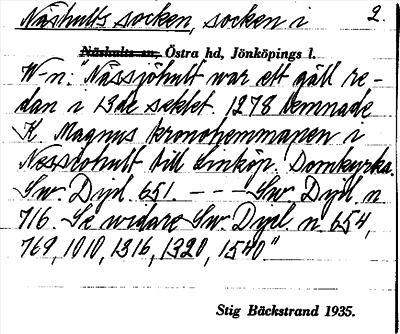 Näshults socken, socken i 2.
Näshults sn, Östra hd, Jönköpings l.
W-n: "Nässjöhult war ett gäll re-
dan i 13de seklet. 1278 lemnade
K. Magnus kronohemmanen i
Nessiohult till Linköp. Domkyrka.
Sw. Dipl. 651. - - - Sw. Dipl n
716. Se widare Sw. Dipl. n 654,
769, 1010, 1316, 1320, 1540"
Stig Bäckstrand 1935.